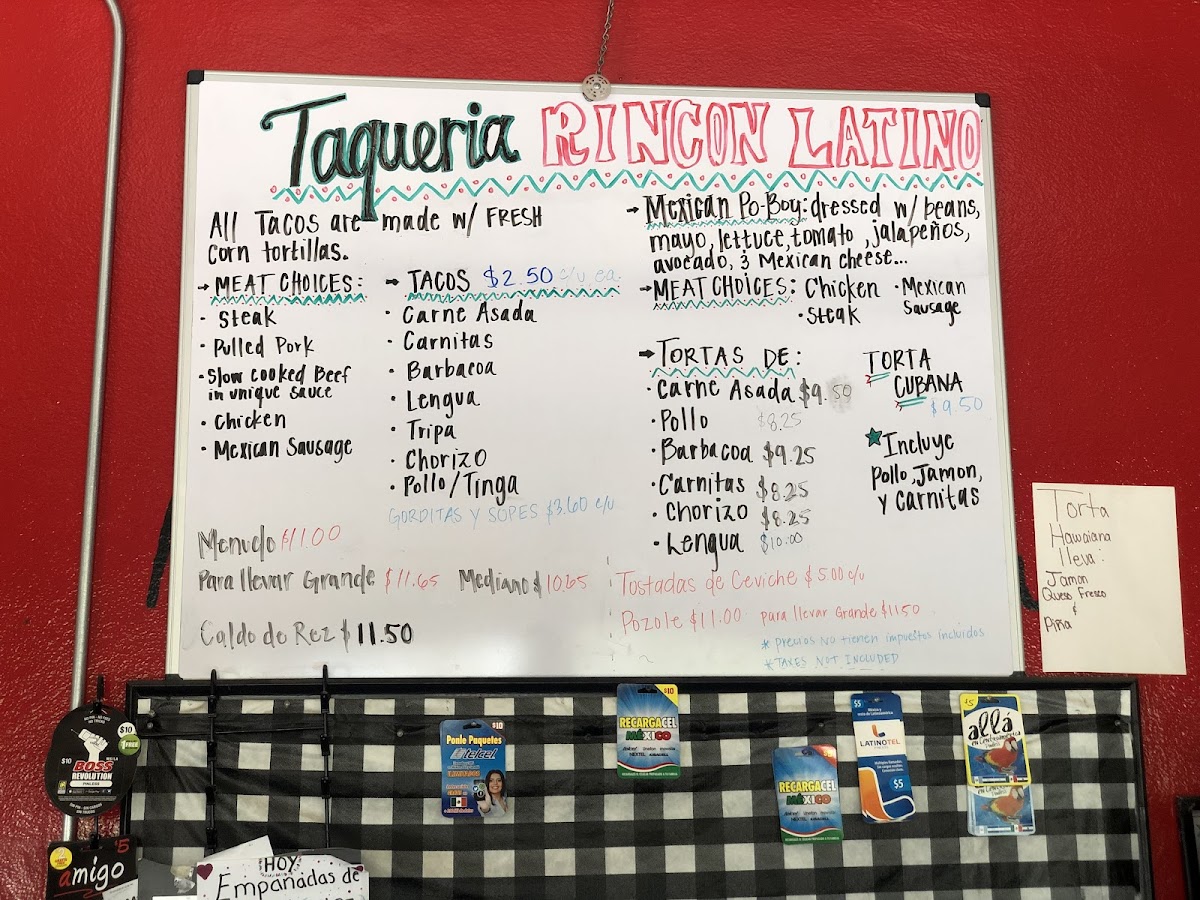 Taqueria RINCON LATINO
All Tacos are made w/ FRESH
corn tortillas.
→ MEAT CHOICES:
• Steak
• Pulled Pork
• Slow cooked Beef
in unique sauce
• Chicken
• Mexican Sausage
→ TACOS $2.50 c/u ea.
• Carne Asada
• Carnitas
• Barbacoa
• Lengua
• Tripa
• Chorizo
• Pollo/Tinga
GORDITAS Y SOPES $3.60 c/u
Menudo $11.00
Para llevar Grande $11.65 Mediano $10.65
Caldo de Rez $11.50
→ Mexican Po-Boy: dressed w/ beans,
mayo, lettuce, tomato, jalapeños,
avocado, & Mexican cheese...
→ MEAT CHOICES: Chicken • Mexican
Sausage
• Steak
→ TORTAS DE:
• Carne Asada $9.50
• Pollo $8.25
• Barbacoa $9.25
• Carnitas $8.25
• Chorizo $8.25
• Lengua $10.00
TORTA
CUBANA
$9.50
★ Incluye
Pollo, Jamon,
y Carnitas
Tostadas de Ceviche $5.00 c/u
Pozole $11.00 para llevar Grande $11.50
* Precios NO tienen impuestos incluidos
* TAXES NOT INCLUDED
Torta
Hawaiana
lleva:
Jamon
Queso Fresco
&
Piña
$10
1 FREE
$10
BOSS
REVOLUTION
PINLESS
$5
amigo
HOY
Empañadas de
$10
Ponle Paquetes
telcel
$10
RECARGACEL
MÉXICO
NEXTEL
RECARGACEL
MÉXICO
NEXTEL
$5
LATINOTEL
$5
$5
allá
en Centroamérica